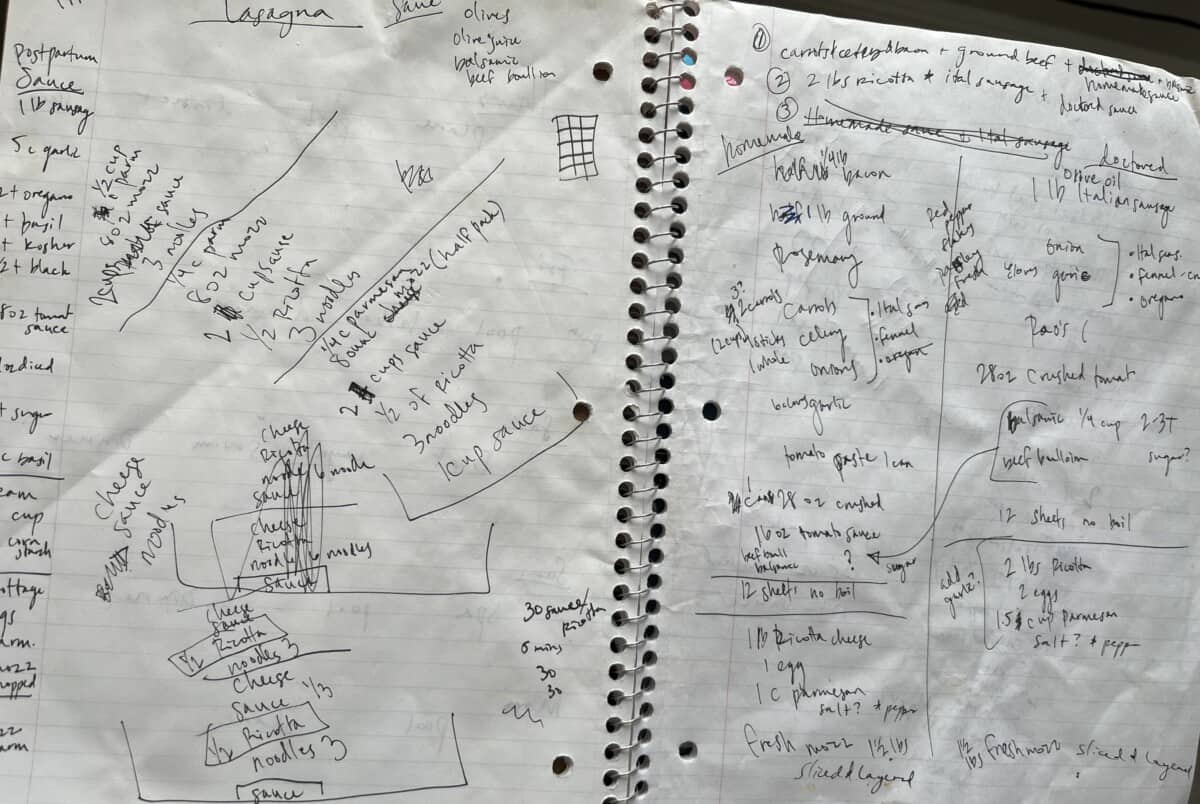 Lasagna
Sauce
olives
olive juice
balsamic
beef boullion
Postpartum
Sauce
1 lb sausag
5 c garlic
2t oregano
t basil
t kosher
/2t black
8oz tomat
sauce
diced
t sugar
c basil
eam
cup
corn
stash
ottage
gs
arm.
mozz
opped
zz
arm
1/2 cup
parm
8oz mozz
2 cups sauce
3 noodles
1/4 c parm
8oz mozz
2 cup sauce
1/2 Ricotta
3 noodles
1/4 c parmesan
8 ounc mozz (half pack)
2 cups sauce
1/2 of Ricotta
3 noodles
1 cup sauce
cheese
sauce
noodles
cheese
Ricotta
noodle
sauce
6 noodle
cheese
Ricotta
noodles
6 noodles
sauce
cheese
sauce
1/2 Ricotta
noodles 3
cheese
sauce 1/3
1/2 Ricotta
noodles 3
sauce
30 sauce/
Ricotta
6 mins
30
30
① carrots celery bacon + ground beef +
homemade sauce
② 2 lbs Ricotta * ital sausage +
doctored sauce
③ Homemade sauce + Ital sausage
homemade
half 1/4 lb bacon
1 lb ground
Rosemary
3?
2 carrots carrots
1 2 cup sticks celery
1 whole onions
• Ital seas
• fennel
• oregano
garlic
tomato paste 1 can
1 can 28 oz crushed
16 oz tomato sauce
beef boull
balsamic ?
sugar
12 sheets no boil
1 lb Ricotta cheese
1 egg
1 c parmesan
salt? * pepper
fresh mozz 1 1/2 lbs
sliced & layered
doctored
olive oil
1 lb Italian sausage
red pepper
flakes
parsley
fennel
seed
onion
cloves garlic
• Ital seas.
• fennel
• oregano
Rao's (
28oz crushed tomat
balsamic 1/4 cup 2-3T
beef bullion sugar?
12 sheets no boil
add
garlic?
2 lbs Ricotta
2 eggs
1.5 cup parmesan
salt? * pepper
1 1/2
lbs fresh mozz sliced & layered